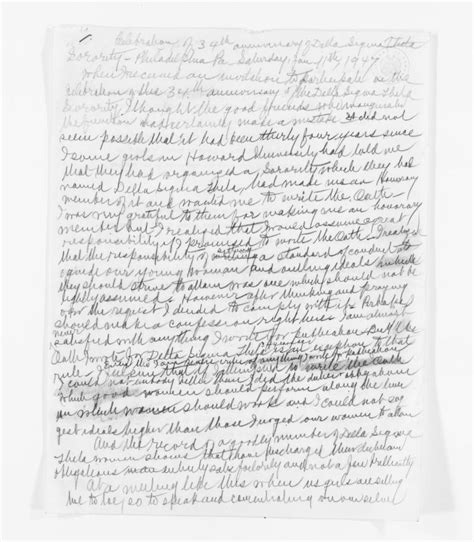 Celebration of 34th anniversary of Delta Sigma Theta
Sorority - Philadelphia Pa Saturday, Jan 11th, 1947
When I received an invitation to participate in the
celebration of this 34th anniversary of the Delta Sigma Theta
Sorority, I thought the good friends who
the function had certainly made a mistake. It did not
seem possible that it had been thirty four years since
some girls in Howard University had told me
that they had organized a Sorority which they had
named Delta Sigma Theta, had made me an Honorary
member of it and wanted me to write the Oath
I was very grateful to them for making me an honorary
member but I realized that I would assume a great
responsibility if I promised to write the Oath. I realized
that the responsibility of setting a standard of conduct to
guide our young women and outlining ideals which
they should strive to attain was one which should not be
lightly assumed. However after thinking and praying
over the request I decided to comply with it. Perhaps I
should make a confession right here. I am almost
never satisfied with anything I write for publication. But the
Oath I wrote for Delta Sigma Theta is an exception to that
rule.
I could not
which good women should perform along the line
on which women should work and I could not sug
gest ideals higher than those I urged our women to attain
And the record of a goodly number of Delta Sigma
Theta women shows that they have discharged their
obligations most satisfactorily and not a few brilliantly
At a meeting like this when us girls are
to so to speak and